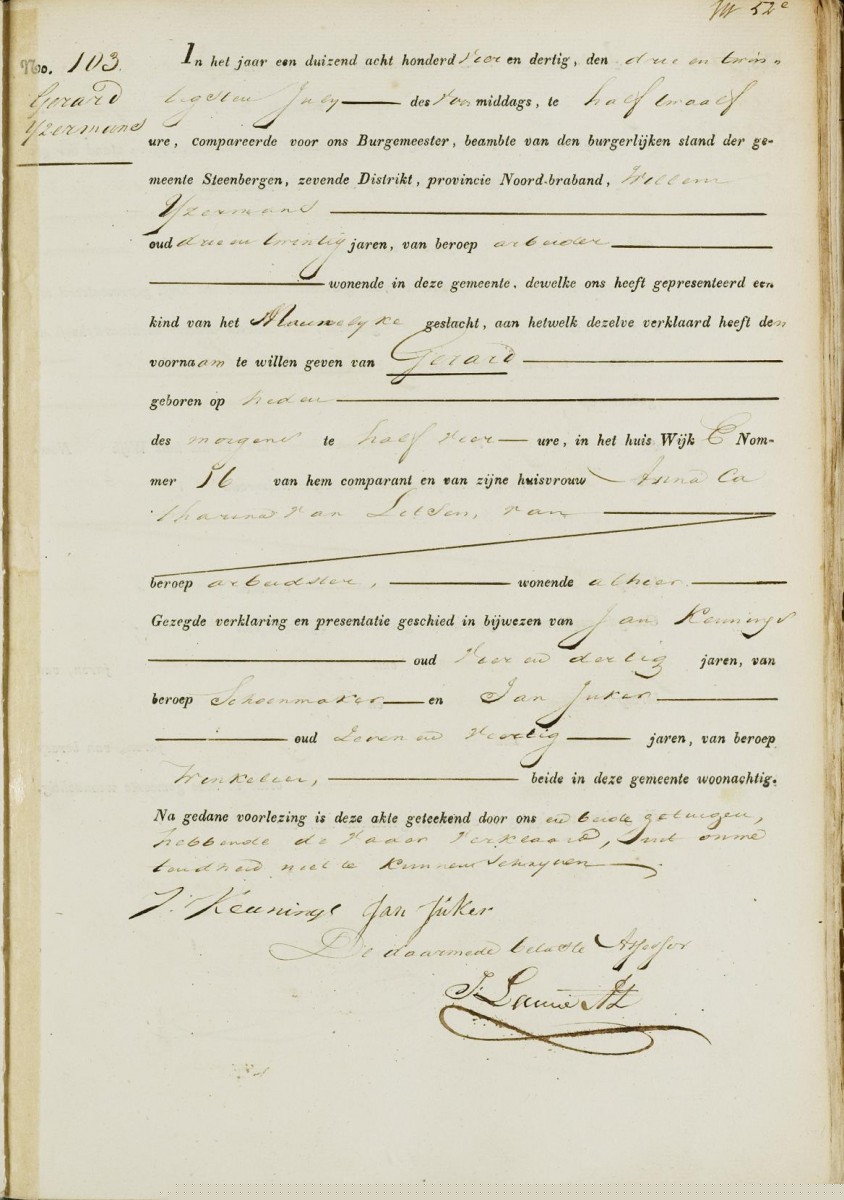 52e
No. 103.
Gerard
Yzermans
In het jaar een duizend acht honderd vier en dertig, den drie en twin-
tigsten July des voormiddags, te half twaalf
ure, compareerde voor ons Burgemeester, beambte van den burgerlijken stand der ge-
meente Steenbergen, zevende Distrikt, provincie Noord-braband, Willem
Yzermans
oud drie en twintig jaren, van beroep arbeider
wonende in deze gemeente, dewelke ons heeft gepresenteerd een
kind van het Mannelyke geslacht, aan hetwelk dezelve verklaard heeft den
voornaam te willen geven van Gerard
geboren op heden
des morgens te half vier ure, in het huis Wijk C Nom-
mer 56 van hem comparant en van zijne huisvrouw Anna Ca
tharina van
beroep arbeidster, wonende alhier
Gezegde verklaring en presentatie geschied in bijwezen van Jan Keunings
oud vier en dertig jaren, van
beroep Schoenmaker en Jan Juker
oud Zeven en Veertig jaren, van beroep
Winkelier, beide in deze gemeente woonachtig.
Na gedane voorlezing is deze akte geteekend door ons en beide getuigen,
hebbende de Vader verklaard, uit onme
te kunnen Schryven
J. Keunings Jan Juker
De daarmede belaste Assessor